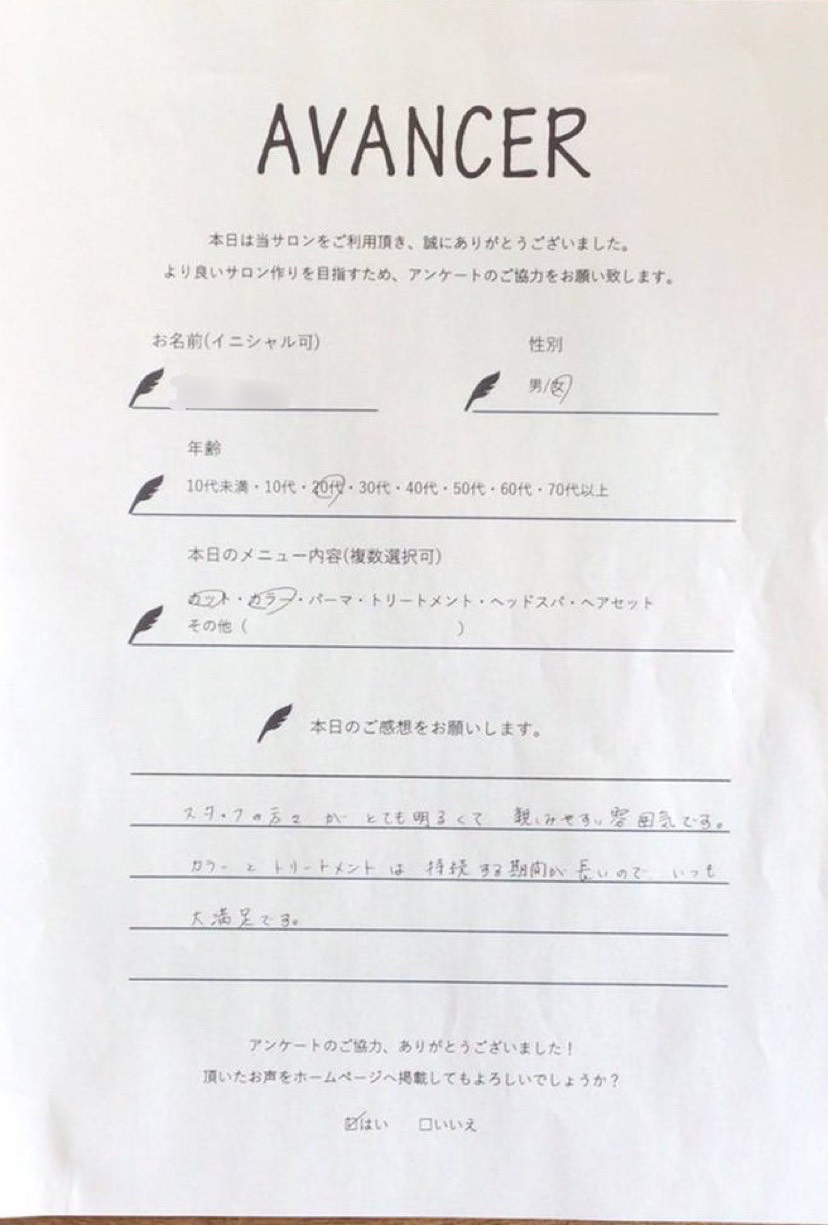 AVANCER
本日は当サロンをご利用頂き、誠にありがとうございました。
より良いサロン作りを目指すため、アンケートのご協力をお願い致します。
お名前(イニシャル可)
性別
男/女
年齢
10代未満・10代・20代・30代・40代・50代・60代・70代以上
本日のメニュー内容(複数選択可)
カット・カラー・パーマ・トリートメント・ヘッドスパ・ヘアセット
その他（ ）
本日のご感想をお願いします。
スタッフの方々がとても明るくて 親しみやすい雰囲気です。
カラーとトリートメントは 持続する期間が長いので、いつも
大満足です。
アンケートのご協力、ありがとうございました！
頂いたお声をホームページへ掲載してもよろしいでしょうか？
☑はい □いいえ